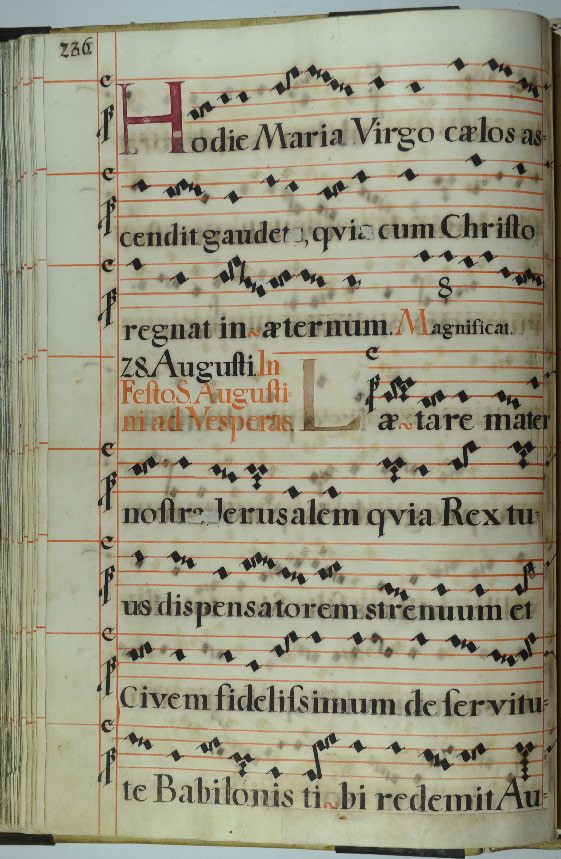 236
Hodie Maria Virgo cælos as=
cendit gaudete, qvia cum Christo
regnat in~æternum. Magnificat.
8
28. Augusti. In
Festo S. Augusti-
ni ad Vesperas.
Læ~tare mater
nostra Jerusalem qvia Rex tu=
us dispensatorem strenuum et
Civem fidelissimum de servitu=
te Babilonis ti~bi redemit Au=